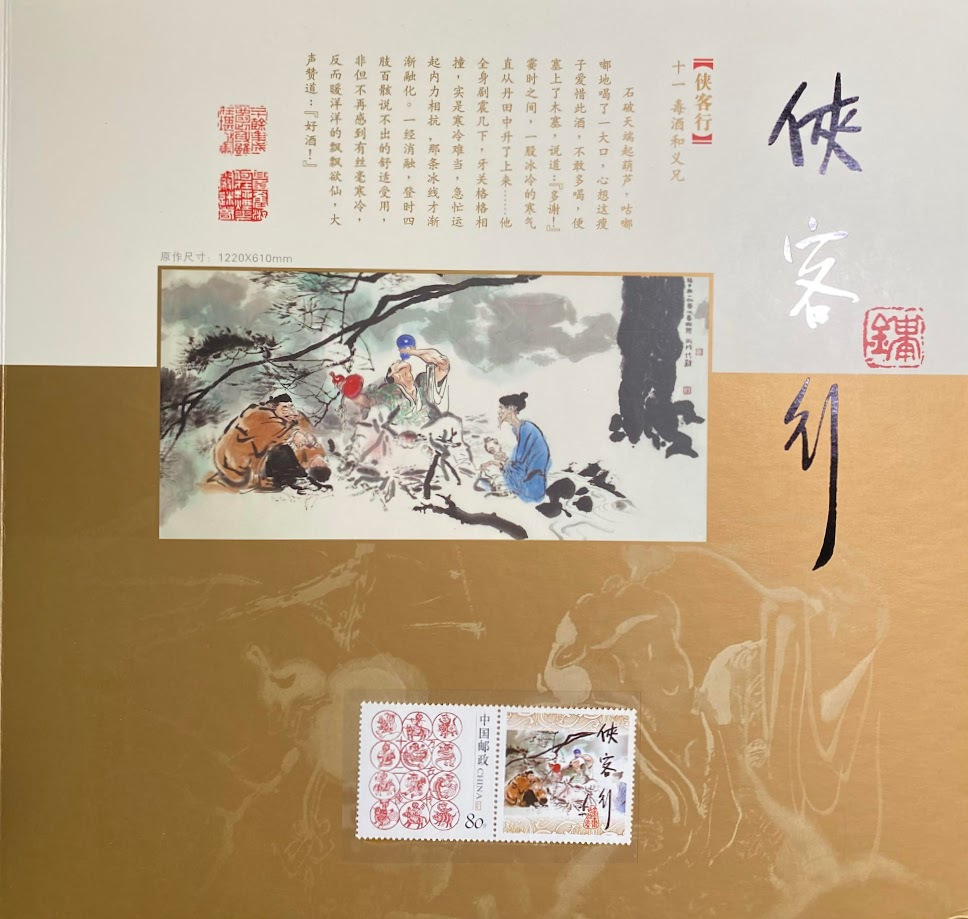 俠客行
鏞
【侠客行】
十一 毒酒和义兄
石破天端起葫芦，咕嘟
嘟地喝了一大口，心想这瘦
子爱惜此酒，不敢多喝，便
塞上了木塞，说道：『多谢！』
霎时之间，一股冰冷的寒气
直从丹田中升了上来……他
全身剧震几下，牙关格格相
撞，实是寒冷难当，急忙运
起内力相抗，那条冰线才渐
渐融化。一经消融，登时四
肢百骸说不出的舒适受用，
非但不再感到有丝毫寒冷，
反而暖洋洋的飘飘欲仙，大
声赞道：『好酒！』
原作尺寸：1220X610mm
中国邮政 CHINA
80分
俠客行